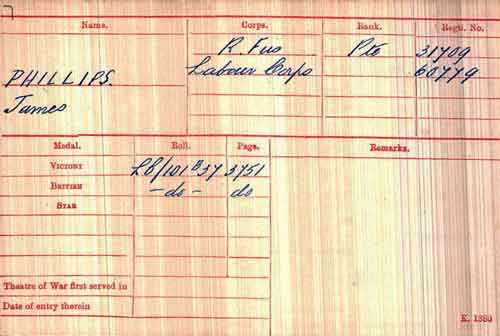 Name. Corps. Rank. Regtl. No.
R. Fus Pte 31709
PHILLIPS. Labour Corps 60779
James
Medal. Roll. Page. Remarks.
VICTORY LB/101 B37 3751
BRITISH -do- do
STAR
Theatre of War first served in
Date of entry therein
K. 1380